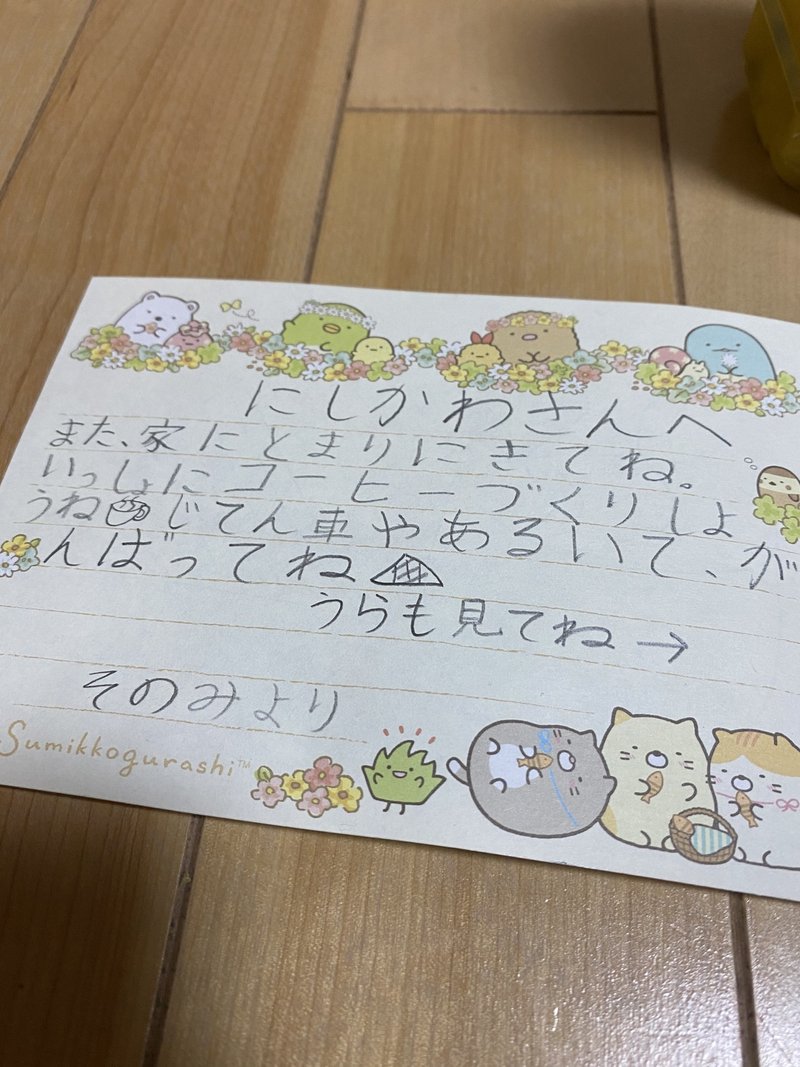 にしかわさんへ
また、家にとまりにきてね。
いっしょにコーヒーづくりしよ
うねじてん車やあるいて、が
んばってね
うらも見てね→
そのみより
Sumikkogurashi™